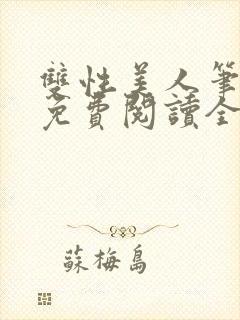 雙性美人筆
免費閱讀全
蘇梅島